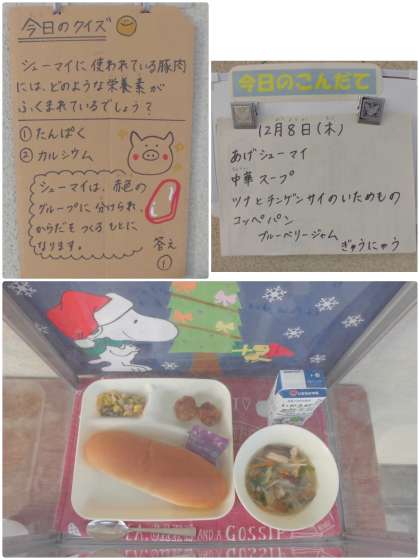 今日のクイズ
シューマイに使われている豚肉
には、どのような栄養素が
ふくまれているでしょう？
①たんぱく
②カルシウム
シューマイは、赤色の
グループに分けられ、
からだをつくるもとに
なります。
答え
①
今日のこんだて
12月8日(木)
あげシューマイ
中華スープ
ツナとチンゲンサイのいためもの
コッペパン
ブルーベリージャム
ぎゅうにゅう
AND A GOSSIP